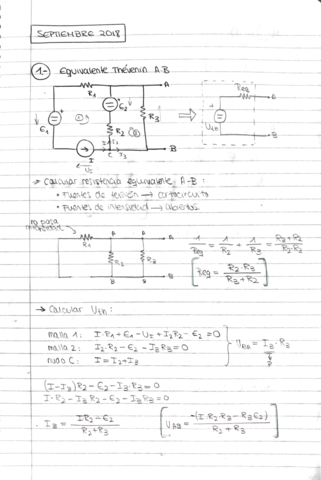 SEPTIEMBRE 2018
1.- Equivalente Thévenin A-B
R1
ε2
R3
A
ε1
R2
I
C
B
Req
A
Vth
B
→ Calcular resistencia equivalente A-B:
• Fuentes de tensión → cortocircuito
• Fuentes de intensidad → abiertas
no pasa
intensidad
R1
R2
R3
A
B
1/Req = 1/R2 + 1/R3 = R3+R2/R2·R3
[Req = R2·R3/R3+R2]
→ Calcular Vth:
malla 1: I·R1+ε1-UI+I2R2-ε2=0
malla 2: I2·R2-ε2-I3R3=0
nudo C: I=I2+I3
UAB = I3·R3
(I-I3)R2-ε2-I3·R3=0
I·R2-I3R2-ε2-I3R3=0
· I3 = IR2-ε2/R2+R3
[UAB = -(I·R2·R3-R3ε2)/R2+R3]